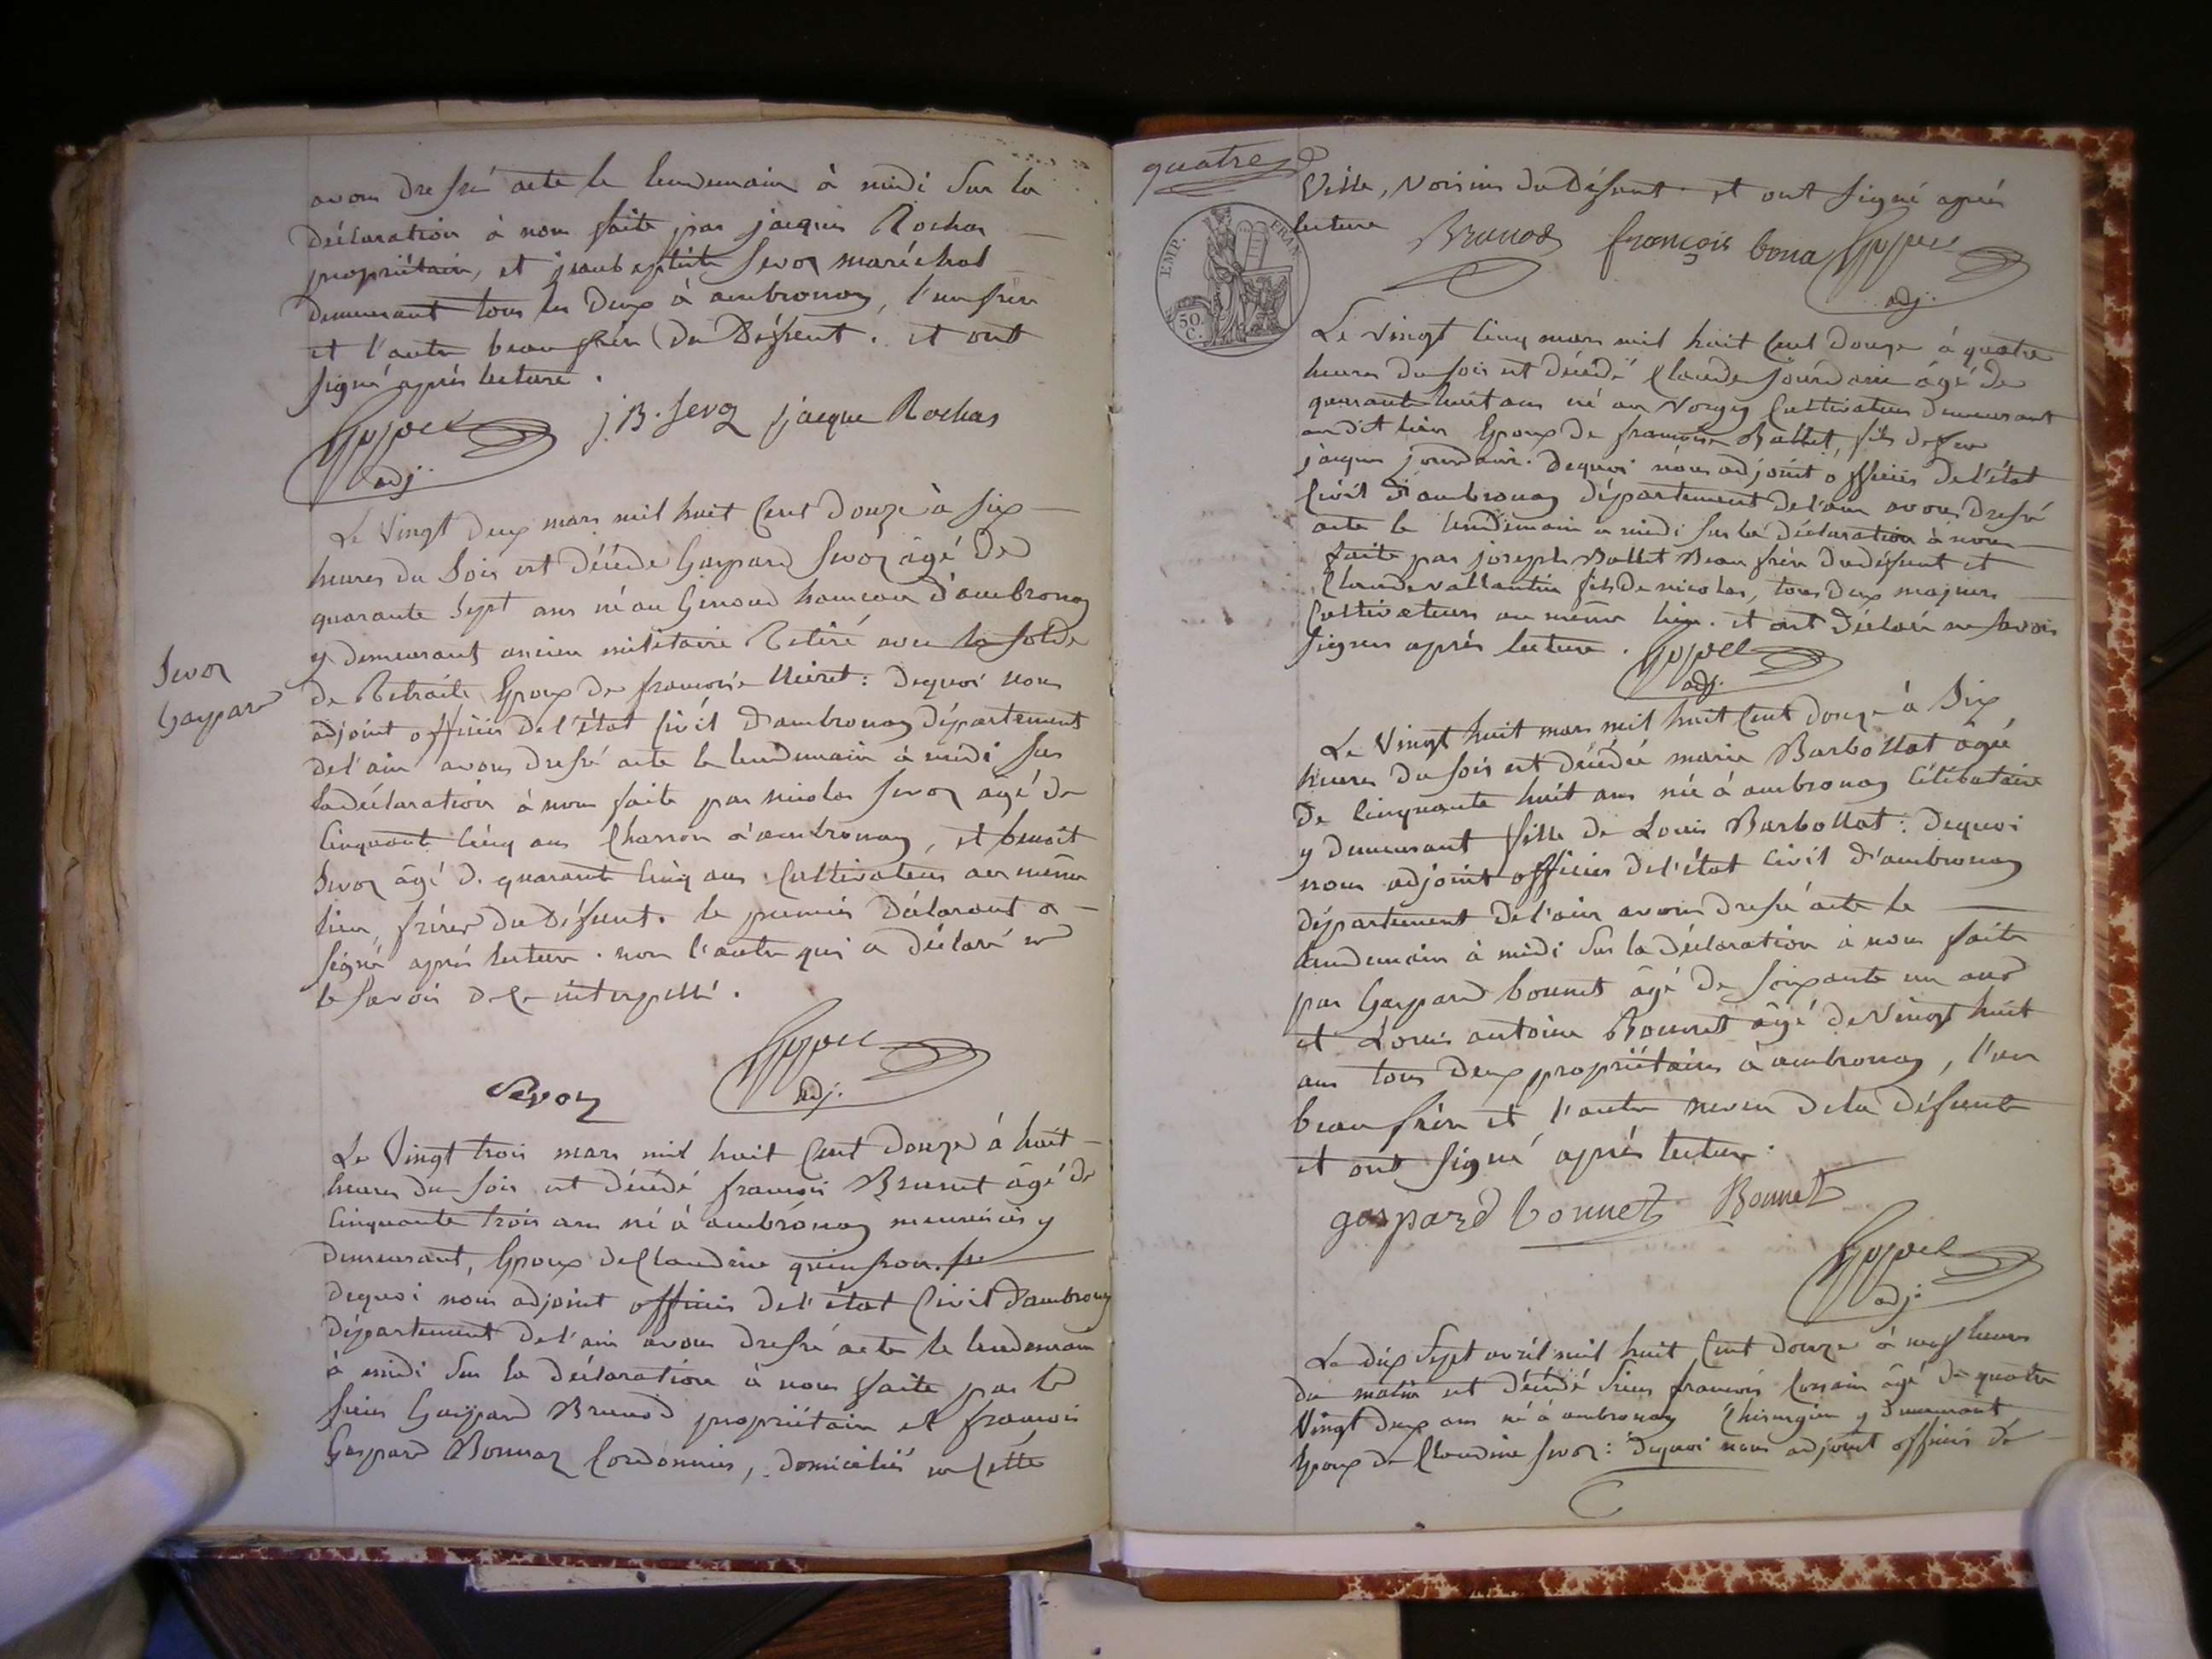 avons dressé acte le lendemain à midi sur la
déclaration à nous faite par jacques Rochas
propriétaire, et jeanbaptiste Sevoz maréchal
demeurant tous les deux à ambronay, l'un frère
et l'autre beaufrère du Défunt. et ont
signé après lecture.
j.B. Sevoz jacque Rochas
adj.
Le Vingt deux mars mil huit Cent Douze à six
heures du Soir est Décédé Gaspard Sevoz âgé de
quarante Sept ans né au Genoud hameau d'ambronay
y demeurant ancien militaire Retiré avec la solde
de Retraite Epoux de francoise : Dequoi nous
Sevoz
Gaspard
adjoint officier de l'état Civil D'ambronay Département
de l'ain avons dressé acte le lendemain à midi sur
la déclaration à nous faite par nicolas Sevoz âgé de
Cinquante Cinq ans Charron à ambronay, et benoit
Sevoz âgé de quarante Cinq ans Cultivateur au même
lieu, frères du Défunt. le premier Déclarant a
signé après lecture. non l'autre qui a déclaré ne
le savoir de ce interpellé.
Sevoz
adj.
Le Vingt trois mars mil huit Cent Douze à huit
heures du soir est décédé francois Brunet âgé de
Cinquante trois ans né à ambronay menuisier y
demeurant, Epoux de Claudine quinson.
dequoi nous adjoint officier de l'état Civil d'ambronay
département de l'ain avons dressé acte le lendemain
à midi Sur la déclaration à nous faite par le
sieur Gaspard Brunod propriétaire et francois
Gaspard Bonnaz Cordonnier, domiciliés en Cette
quatre
Ville, Voisins du Défunt et ont signé après
lecture Brunod françois bona
adj.
EMP. FRAN.
50 C.
Le Vingt Cinq mars mil huit Cent Douze à quatre
heures du soir est décédé Claude Jourdain âgé de
quarante huit ans né au Cultivateur demeurant
au dit lieu Epoux de francoise Ballet, fils de feu
jacques jourdain. Dequoi nous adjoint officier de l'état
Civil d'ambronay département de l'ain avons dressé
acte le lendemain à midi sur la déclaration à nous
faite par joseph Ballet Beau frère du défunt et
Claude vallantin fils de nicolas, tous deux majeurs
Cultivateurs au même lieu. et ont déclaré ne savoir
signer après lecture.
adj.
Le Vingt huit mars mil huit Cent Douze à Six
heures du soir est décédée marie Barbollat âgée
De Cinquante huit ans née à ambronay Célibataire
y demeurant fille de Louis Barbollat : dequoi
nous adjoint officier de l'état Civil d'ambronay
département de l'ain avons dressé acte le
lendemain à midi Sur la déclaration à nous faite
par Gaspard bonnet âgé de soixante un ans
et Louis antoine Bonnet âgé de Vingt huit
ans tous deux propriétaires à ambronay, l'un
beau frère et l'autre neveu de la défunte
et ont signé après lecture.
gaspard bonnet Bonnet
adj.
Le dix Sept avril mil huit Cent douze à neuf heures
du matin est décédé Sieur francois âgé de quatre
Vingt deux ans né à ambronay Chirurgien y demeurant
Epoux de Claudine Sevoz : dequoi nous adjoint officier de